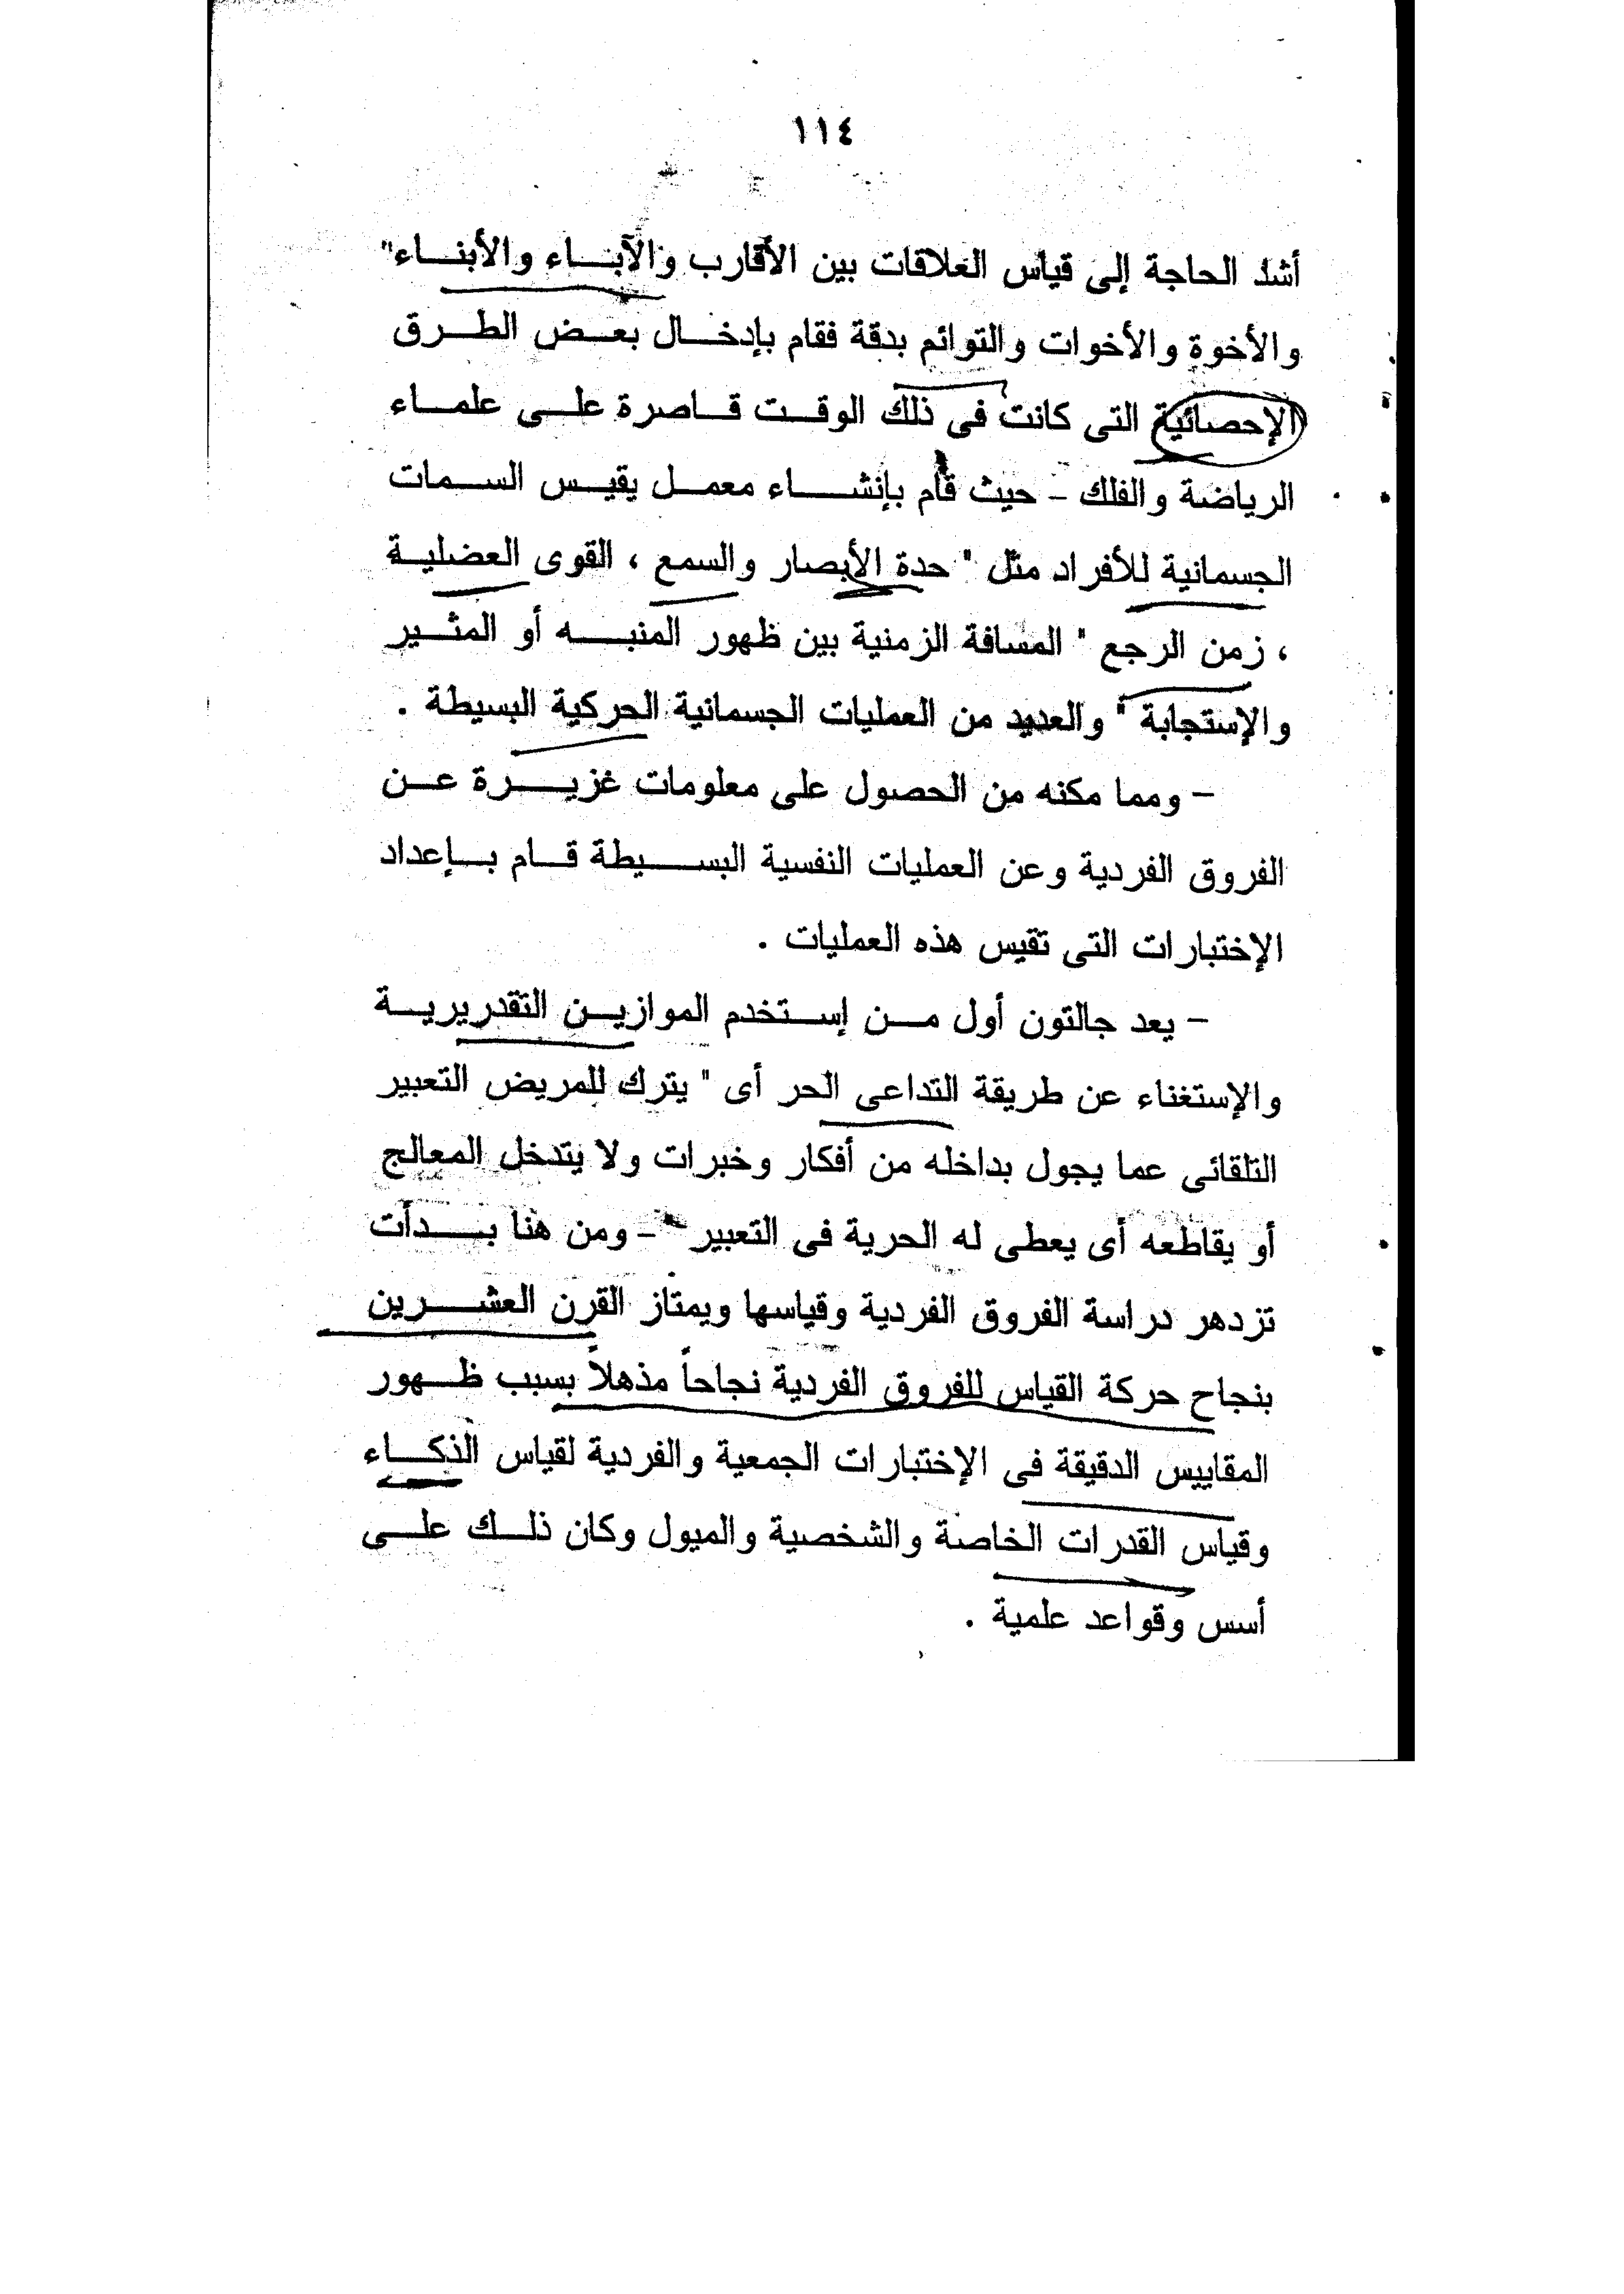 ١١٤
أشد الحاجة إلى قياس العلاقات بين الأقارب والآباء والأبناء"
والأخوة والأخوات والتوائم بدقة فقام بإدخال بعض الطرق
الإحصائية التى كانت فى ذلك الوقت قاصرة على علماء
الرياضة والفلك – حيث قام بإنشاء معمل يقيس السمات
الجسمانية للأفراد مثل " حدة الأبصار والسمع ، القوى العضلية
، زمن الرجع " المسافة الزمنية بين ظهور المنبه أو المثير
والإستجابة " والعديد من العمليات الجسمانية الحركية البسيطة .
– ومما مكنه من الحصول على معلومات غزيرة عن
الفروق الفردية وعن العمليات النفسية البسيطة قام بإعداد
الإختبارات التى تقيس هذه العمليات .
– يعد جالتون أول من إستخدم الموازين التقدريرية
والإستغناء عن طريقة التداعى الحر أى " يترك للمريض التعبير
التلقائى عما يجول بداخله من أفكار وخبرات ولا يتدخل المعالج
أو يقاطعه أى يعطى له الحرية فى التعبير " – ومن هنا بدأت
تزدهر دراسة الفروق الفردية وقياسها ويمتاز القرن العشرين
بنجاح حركة القياس للفروق الفردية نجاحاً مذهلاً بسبب ظهور
المقاييس الدقيقة فى الإختبارات الجمعية والفردية لقياس الذكاء
وقياس القدرات الخاصة والشخصية والميول وكان ذلك على
أسس وقواعد علمية .